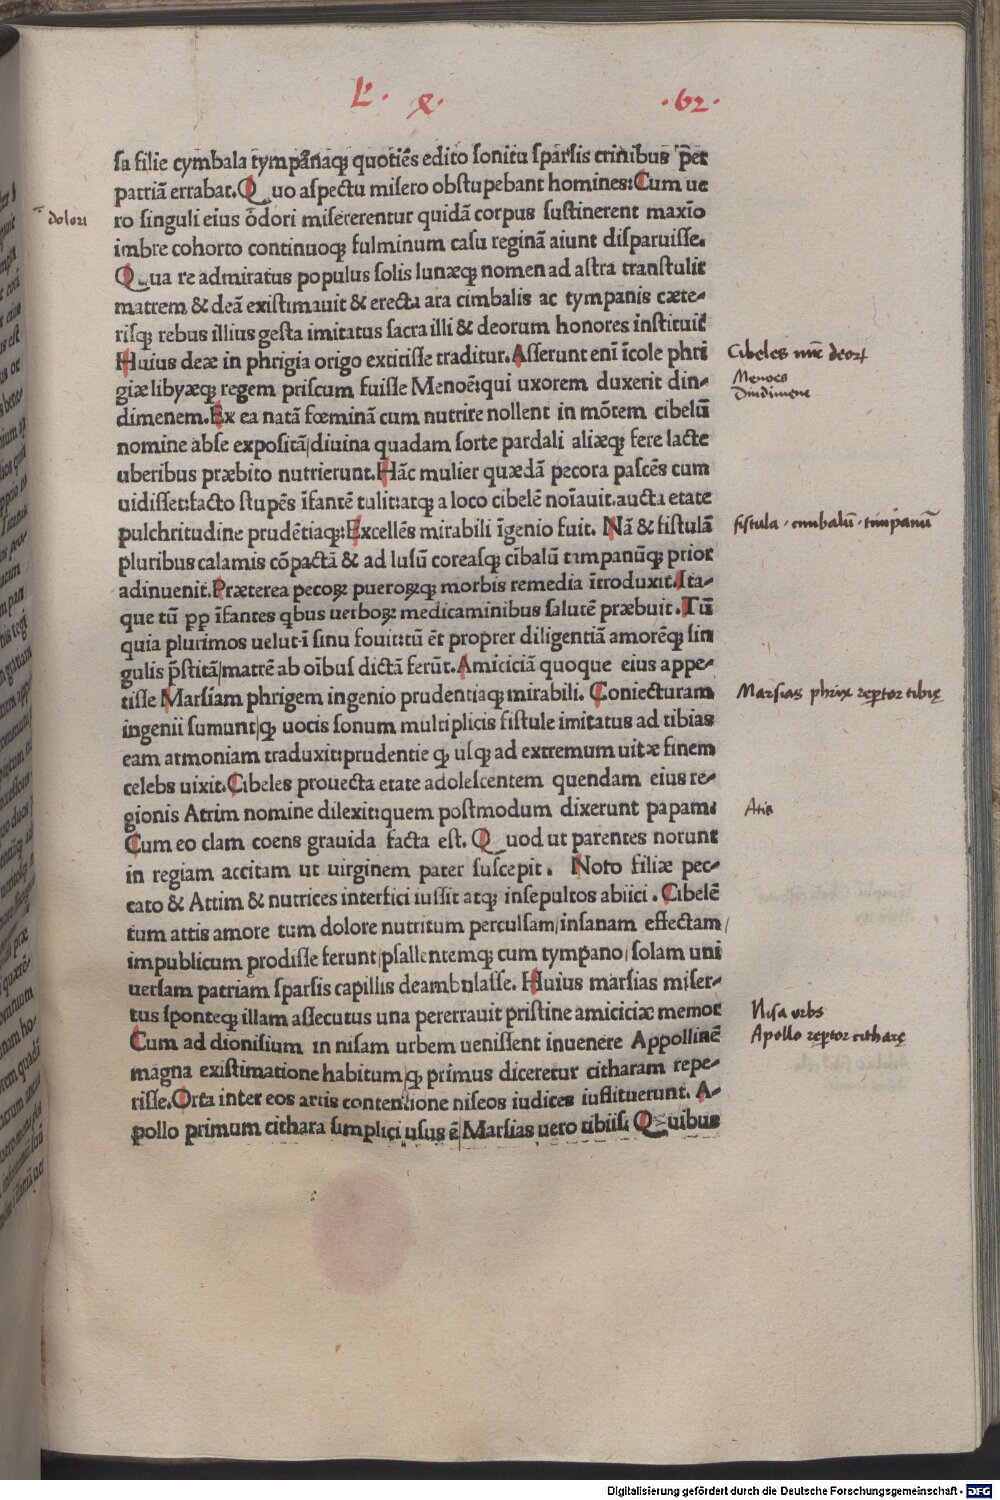 L'. x. .62.
sa filie cymbala tympanaq; quotiēs edito sonitu sparsis crinibus per
patriā errabat. Quo aspectu misero obstupebant homines: Cum ue
dolori
ro singuli eius odori misererentur quidā corpus sustinerent maxīo
imbre cohorto continuoq; fulminum casu reginā aiunt disparuisse.
Qua re admiratus populus solis lunæq; nomen ad astra transtulit
matrem, & deā existimauit & erecta ara cimbalis ac tympanis cæte-
risq; rebus illius gesta imitatus sacra illi & deorum honores instituit
Huius deæ in phrigia origo extitisse traditur. Asserunt enī īcole phri
Cibeles
giæ libyæq; regem priscum fuisse Menoē: qui uxorem duxerit din-
Menoes
Dindimene
dimenem. Ex ea natā fœminā cum nutrire nollent in mōtem cibelū
nomine abse expositā/diuina quadam sorte pardali aliæq; fere lacte
uberibus præbito nutrierunt. Hāc mulier quædā pecora pascēs cum
uidisset: facto stupēs īfantē tulit: atq; a loco cibelē noīauit. aucta etate
pulchritudine prudētiaq; Excellēs mirabili īgenio fuit. Nā & fistulā
fistula . cimbalū . timpanū
pluribus calamis cōpactā & ad lusū coreasq; cībalū timpanūq; prior
adinuenit. Præterea pecoꝝ pueroꝝq; morbis remedia ītroduxit. Ita-
que tū pp īfantes qbus uerboꝝ medicaminibus salutē præbuit. Tū
quia plurimos uelut ī sinu fouit: tū ēt propter diligentiā amorēq; sin
gulis p̄stitā/matrē ab oībus dictā ferūt. Amiciciā quoque eius appe-
tisse Marsiam phrigem ingenio prudentiaq; mirabili. Coniecturam
Marsias phrix reptor tibię
ingenii sumunt/q; uocis sonum multiplicis fistule imitatus ad tibias
eam armoniam traduxit: prudentie q; usq; ad extremum uitæ finem
celebs uixit. Cibeles prouecta etate adolescentem quendam eius re-
gionis Atrim nomine dilexit: quem postmodum dixerunt papam:
Atis
Cum eo clam coens grauida facta est. Quod ut parentes norunt
in regiam accitam ut uirginem pater suscepit. Noto filiæ pec-
cato & Attim & nutrices interfici iussit atq; insepultos abiici. Cibelē
tum attis amore tum dolore nutritum perculsam/insanam effectam/
impublicum prodisse ferunt/psallentemq; cum tympano/solam uni
uersam patriam sparsis capillis deambulasse. Huius marsias miser-
tus sponteq; illam assecutus una pererrauit pristine amiciciæ memor
Nisa urbs
Cum ad dionisium in nisam urbem uenissent inuenere Appollinē
Apollo reptor citharę
magna existimatione habitum/q; primus diceretur citharam repe-
risse. Orta inter eos artis contentione niseos iudices instituerunt. A-
pollo primum cithara simplici usus ē/Marsias uero tibiis: Quibus
Digitalisierung gefördert durch die Deutsche Forschungsgemeinschaft - DFG